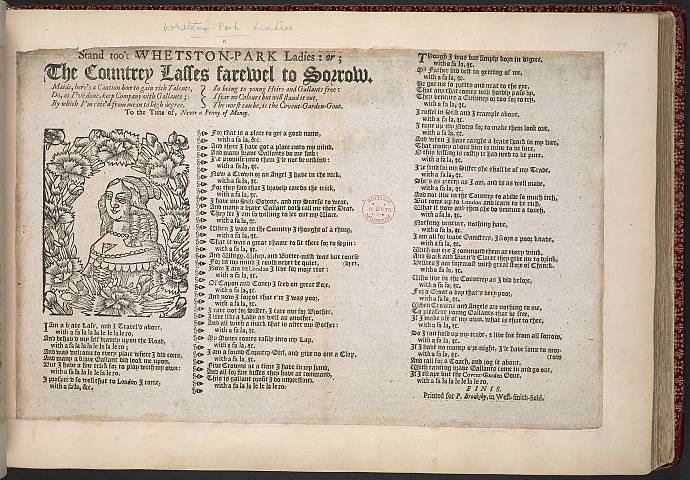 Whetston Park Ladies
77
Stand too't WHETSTON-PARK Ladies: or;
The Countrey Lasses farewel to Sorrow.
Maids, here's a Caution how to gain rich Talents,
Do, as I've done, keep Company with Gallants;
By which I'm rais'd from mean to high degree,
In being to young Heirs and Gallants free:
I fear no Colours but will stand it out,
The worst can be, is the Covent-Garden-Gout.
To the Tune of, Never a Penny of Money.
I Am a brave Lass, and I Travel'd about,
with a fa la la la le le la le ro,
And behav'd my self bravely upon the Road,
with a fa la la la le le la le ro;
And was welcome to every place where I did come,
And many a brave Gallant did look me upon,
But I have a fine trick for to play with my own:
with a fa la la la le le la le ro.
I prosper'd so well that to London I came,
with a fa la, &c.
For that is a place to get a good name,
with a fa la, &c.
And there I have got a place unto my mind,
And many brave Gallants do me find;
I'le be
with a fa la, &c.
Now a Crown or an Angel I have in the nick,
with a fa la, &c.
For they find that I bravely can do the trick,
with a fa la, &c.
I have my Silk Gowns, and my Scarfs to wear,
And many a brave Gallant doth call me their Dear,
They see I am so willing to let out my Ware.
with a fa la, &c.
When I was in the Country I thought of a thing,
with a fa la, &c.
That it was a great shame to sit there for to Spin:
with a fa la, &c.
And Whigg, Whey, and Butter-milk was but course
For in my mind I could never be quiet,
Now I am in London I live for most riot:
with a fa la, &c.
Of Capon and Coney I feed on great store,
with a fa la, &c.
And now I forgot that e're I was poor,
with a fa la, &c.
I care not for Sister, I care not for Brother,
I live like a Lady as well as another,
And all with a knack that is after my Mother:
with a fa la, &c.
My Money comes easily into my Lap,
with a fa la, &c.
I am a sound Country Girl, and give no one a Clap,
with a fa la, &c.
Five Crowns at a time I have in my hand,
And all for fine kisses they have at command,
This is gallant profit I do understand,
with a fa la la la le le la le ro:
Though I was but simply born in degree,
with a fa la la, &c.
My Father did best in getting of me,
with a fa la, &c.
He got me so pretty and neat to the eye,
That any that comes will hardly pass by,
They venture a Guinney or two for to try,
with a fa la, &c.
I russel in Silk and I trample about,
with a fa la, &c.
I tune up my notes for to make them look out,
with a fa la, &c.
And when I have caught a brave spark in my lure,
That money about him is mine to be sure,
O this kissing is costly it had need to be pure.
with a fa la, &c.
I'le send for my Sister she shall be of my Trade,
with a fa la, &c.
She's as pretty as I am, and is as well made,
with a fa la, &c.
And not live in the Country to abide so much truth,
But come up to London and learn to be rich,
What if now and then she do venture a touch,
with a fa la, &c.
Nothing venture, nothing have,
with a fa la, &c.
I am all for brave Gamsters, I scorn a poor knave,
with a fa la, &c.
With my eye I command them at every wink,
And Sack and Burn'd Claret they give me to drink,
Besides I am furnisht with great store of Chinck.
with a fa la, &c.
Who live in the Countrey as I did before,
with a fa la, &c.
For a Groat a day that's very poor,
with a fa la, &c.
When Crowns and Angels are nothing to me,
To pleasure young Gallants that be free,
If I make use of my own what is that to thee,
with a fa la, &c.
So I can hold up my trade, I live free from all sorrow,
with a fa la, &c.
If I have no money o're night, I'le have some to mor-
row
with a fa la, &c.
And call for a Coach, and jog it about,
With ranting brave Gallants come in and go out,
If I escape but the Covent-Garden Gout.
with a fa la la la le le la le ro.
FINIS.
Printed for P. Brooksby, in West-smith-field.